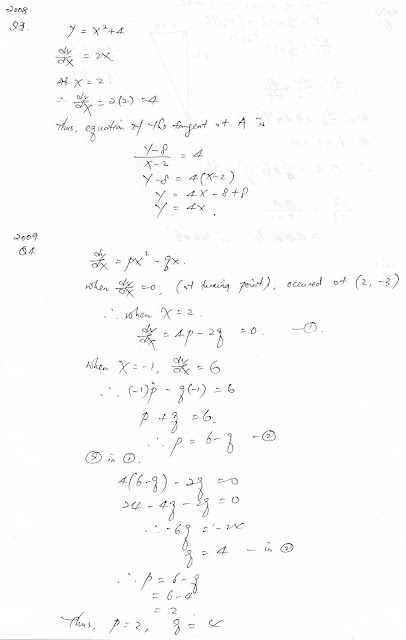 2008.
Q3. y = x²+4
dy/dx = 2x
As x = 2.
∴ dy/dx = 2(2) = 4
Thus, equation of the tangent at A is
y-8/x-2 = 4
y-8 = 4(x-2)
y = 4x-8+8
y = 4x.
2009
Q4
dy/dx = px² - qx.
when dy/dx = 0, (at turning point), occured at (2, -3)
∴ when x = 2.
dy/dx = 4p - 2q = 0. —①.
When x = -1, dy/dx = 6
∴ (-1)²p - q(-1) = 6
p + q = 6.
∴ p = 6-q —②
② in ①.
4(6-q) - 2q = 0
24 - 4q - 2q = 0
∴ -6q = -24
q = 4 — in ②
∴ p = 6-q
= 6-4
= 2.
Thus, p = 2, q = 4